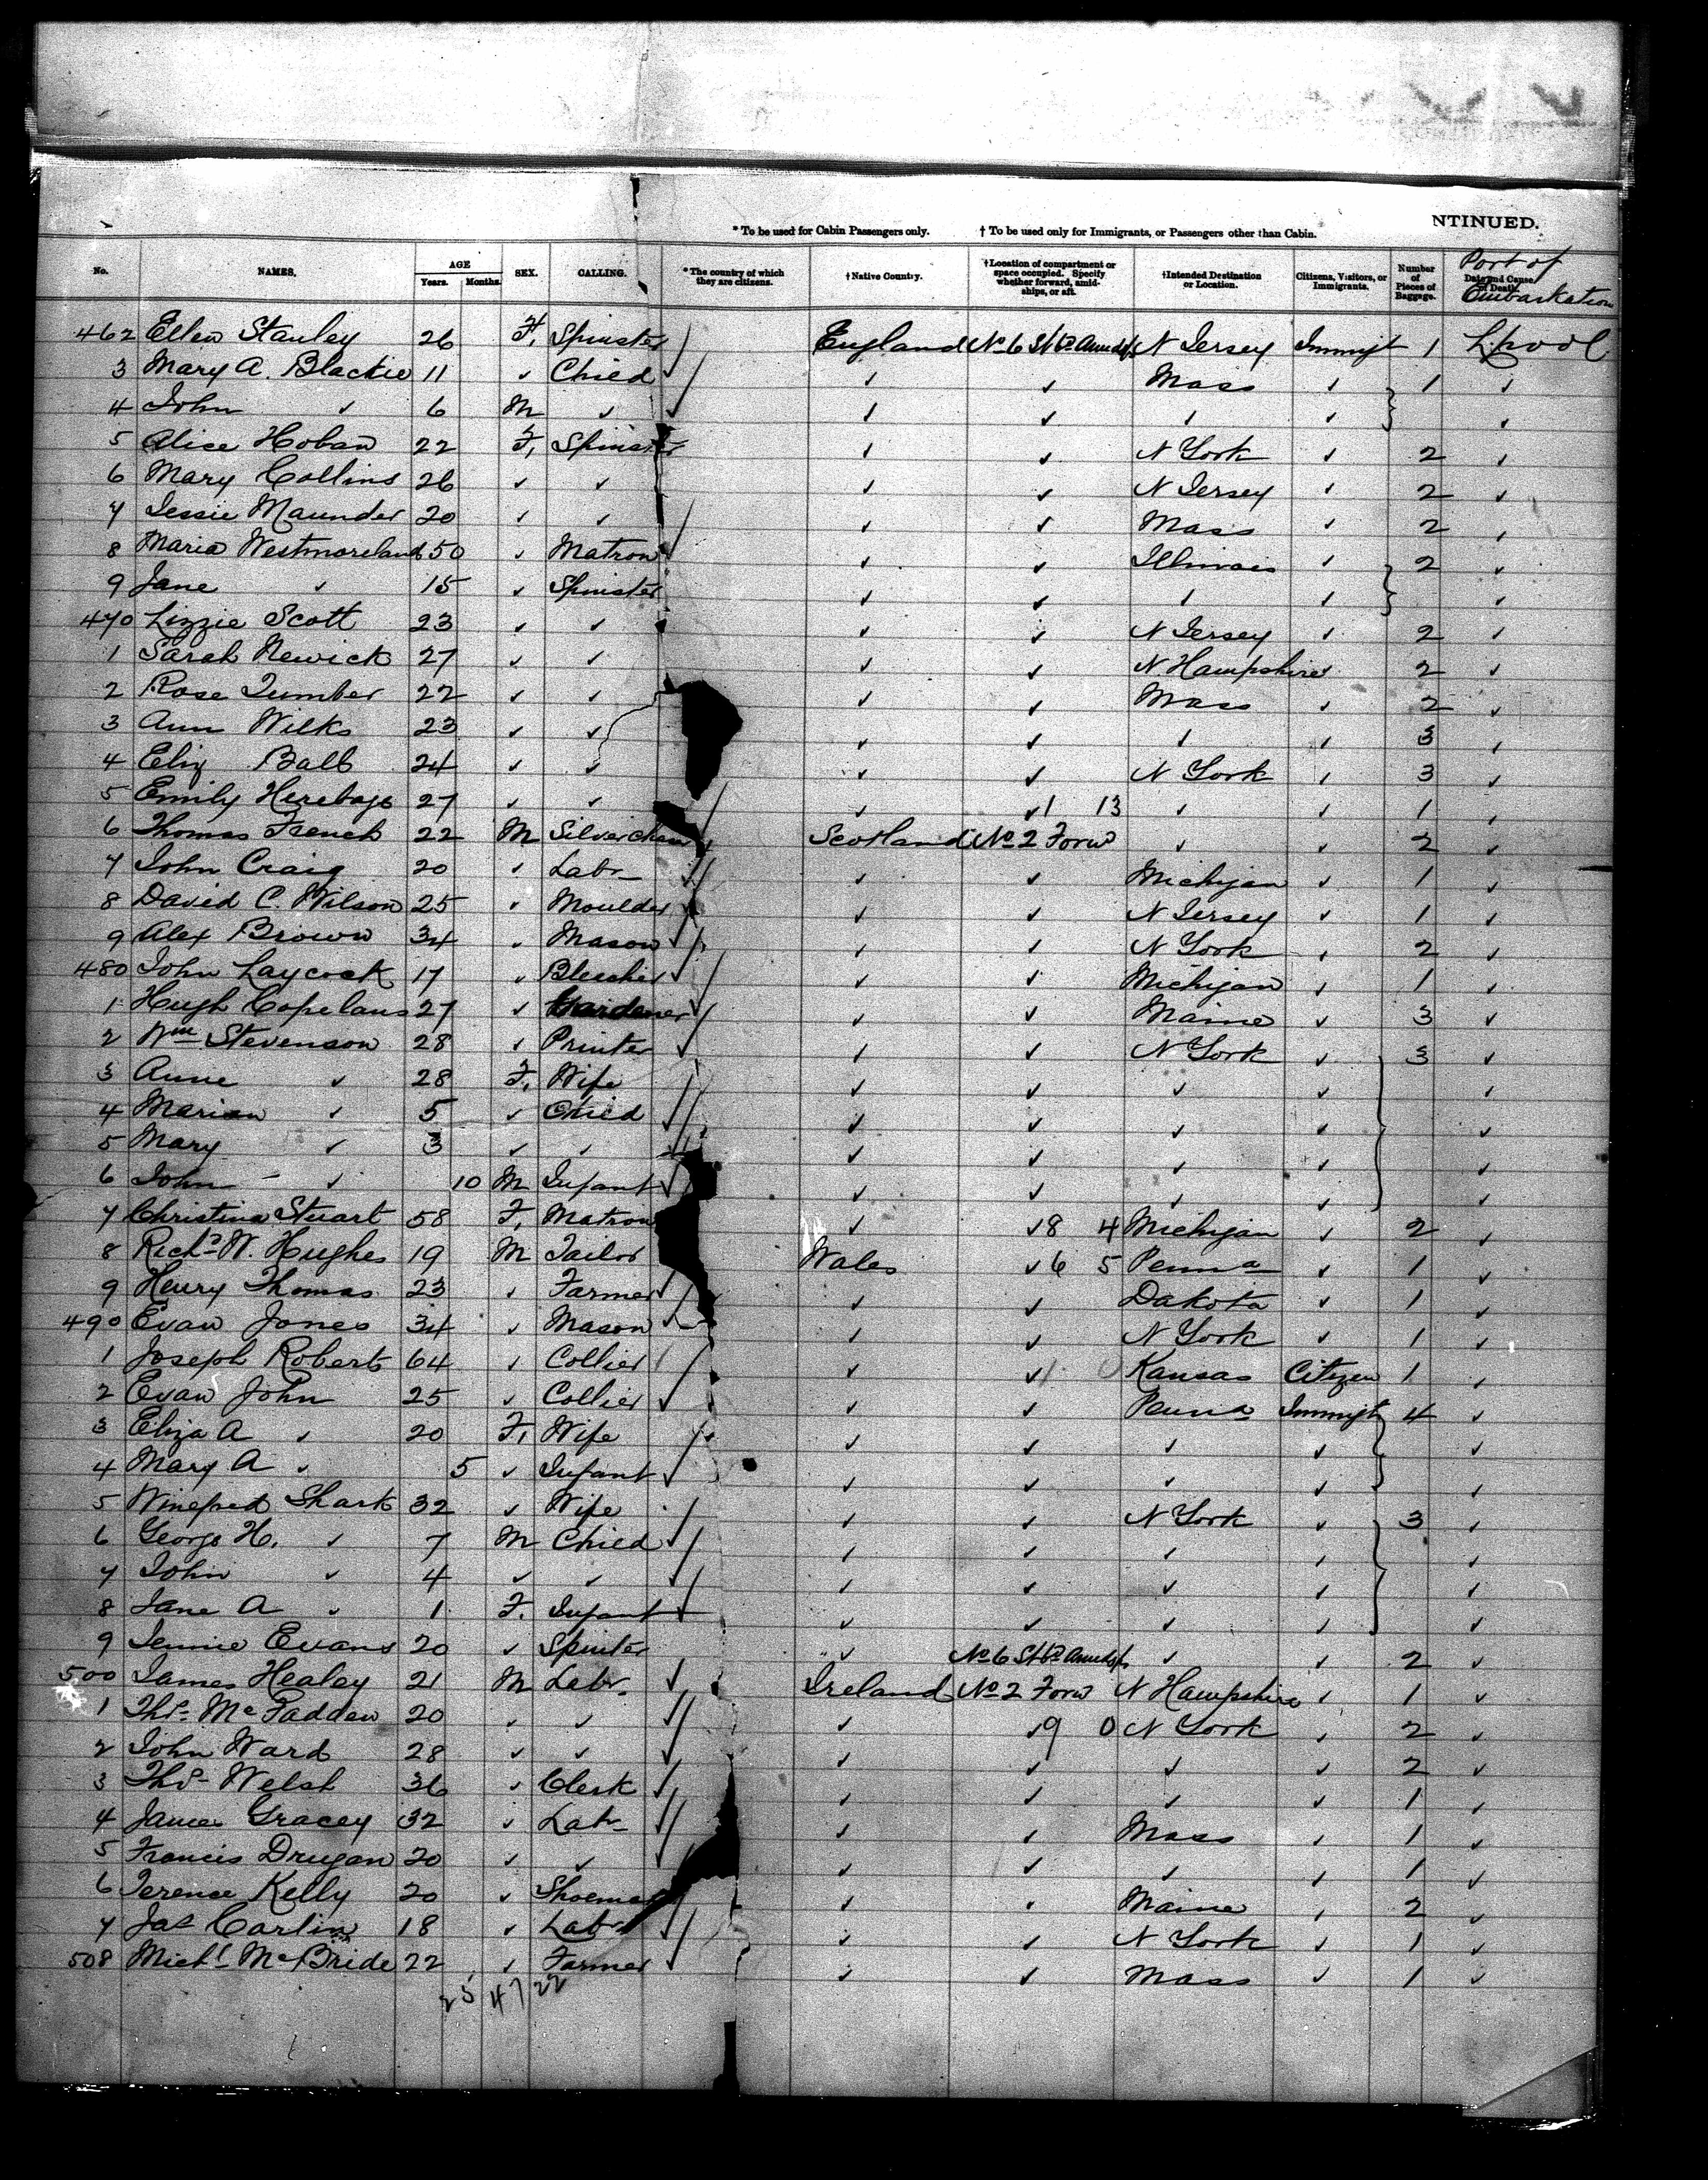 NTINUED.
* To be used for Cabin Passengers only. † To be used only for Immigrants, or Passengers other than Cabin.
No. NAMES. AGE Years. Months. SEX. CALLING. * The country of which they are citizens. † Native Country. † Location of compartment or space occupied. Specify whether forward, amidships, or aft. † Intended Destination or Location. Citizens, Visitors, or Immigrants. Number of Pieces of Baggage. Date and Cause of Death. Port of Embarkation
462 Ellen Stanley 26 F. Spinster England No. 6 N Jersey Immigt 1 L.pool
3 Mary A. Blackie 11 ✓ Child ✓ ✓ Mass ✓ 1 ✓
4 John ✓ 6 M ✓ ✓ ✓ ✓ ✓ ✓
5 Alice Hoban 22 F. Spinster ✓ ✓ N York ✓ 2 ✓
6 Mary Collins 26 ✓ ✓ ✓ ✓ N Jersey ✓ 2 ✓
7 Jessie Maunder 20 ✓ ✓ ✓ ✓ Mass ✓ 2 ✓
8 Maria Westmoreland 50 ✓ Matron ✓ ✓ Illinois ✓ 2 ✓
9 Jane ✓ 15 ✓ Spinster ✓ ✓ ✓ ✓ ✓
470 Lizzie Scott 23 ✓ ✓ ✓ ✓ N Jersey ✓ 2 ✓
1 Sarah Newick 27 ✓ ✓ ✓ ✓ N Hampshire ✓ 2 ✓
2 Rose 22 ✓ ✓ ✓ ✓ Mass ✓ 2 ✓
3 Ann Wilks 23 ✓ ✓ ✓ ✓ ✓ ✓ 3 ✓
4 Eliz Ball 24 ✓ ✓ ✓ ✓ N York ✓ 3 ✓
5 Emily 27 ✓ ✓ ✓ ✓ 1 13 ✓ ✓ 1 ✓
6 Thomas French 22 M Scotland No 2 Forw ✓ ✓ 2 ✓
7 John Craig 20 ✓ Labr ✓ ✓ Michigan ✓ 1 ✓
8 David C. Wilson 25 ✓ Moulder ✓ ✓ N Jersey ✓ 1 ✓
9 Alex Brown 34 ✓ Mason ✓ ✓ N York ✓ 2 ✓
480 John Laycock 17 ✓ Bleecher ✓ ✓ Michigan ✓ 1 ✓
1 Hugh Copeland 27 ✓ Gardener ✓ ✓ Maine ✓ 3 ✓
2 Wm Stevenson 28 ✓ Printer ✓ ✓ N York ✓ 3 ✓
3 Anne ✓ 28 F. Wife ✓ ✓ ✓ ✓ ✓
4 Marian ✓ 5 ✓ Child ✓ ✓ ✓ ✓ ✓
5 Mary ✓ 3 ✓ ✓ ✓ ✓ ✓ ✓ ✓
6 John ✓ 10 M Infant ✓ ✓ ✓ ✓ ✓
7 Christina Stuart 58 F. Matron ✓ ✓ 8 4 Michigan ✓ 2 ✓
8 Richd W. Hughes 19 M Tailor Wales ✓ 6 5 Penna ✓ 1 ✓
9 Henry Thomas 23 ✓ Farmer ✓ ✓ Dakota ✓ 1 ✓
490 Evan Jones 34 ✓ Mason ✓ ✓ N York ✓ 1 ✓
1 Joseph Robert 64 ✓ Collier ✓ ✓ 1 0 Kansas Citizen 1 ✓
2 Evan John 25 ✓ Collier ✓ ✓ Penna Immigt 4 ✓
3 Eliza A ✓ 20 F. Wife ✓ ✓ ✓ ✓ ✓
4 Mary A ✓ 5 ✓ Infant ✓ ✓ ✓ ✓ ✓
5 Winefred Shark 32 ✓ Wife ✓ ✓ N York ✓ 3 ✓
6 George H. ✓ 7 M Child ✓ ✓ ✓ ✓ ✓
7 John ✓ 4 ✓ ✓ ✓ ✓ ✓ ✓ ✓
8 Jane A ✓ 1 F. Infant ✓ ✓ ✓ ✓ ✓
9 Jennie Evans 20 ✓ Spinter ✓ No 6 ✓ ✓ 2 ✓
500 James Healey 21 M Labr. Ireland No 2 Forw N Hampshire ✓ 1 ✓
1 Ths McFadden 20 ✓ ✓ ✓ ✓ 9 0 N York ✓ 2 ✓
2 John Ward 28 ✓ ✓ ✓ ✓ ✓ ✓ 2 ✓
3 Ths Welsh 36 ✓ Clerk ✓ ✓ ✓ ✓ 1 ✓
4 James Gracey 32 ✓ Labr ✓ ✓ Mass ✓ 1 ✓
5 Francis Drugan 20 ✓ ✓ ✓ ✓ ✓ ✓ 1 ✓
6 Terence Kelly 20 ✓ ✓ ✓ Maine ✓ 2 ✓
7 Jas Carlin 18 ✓ Labr ✓ ✓ N York ✓ 1 ✓
508 Michl McBride 22 ✓ Farmer ✓ ✓ Mass ✓ 1 ✓
25 47 22